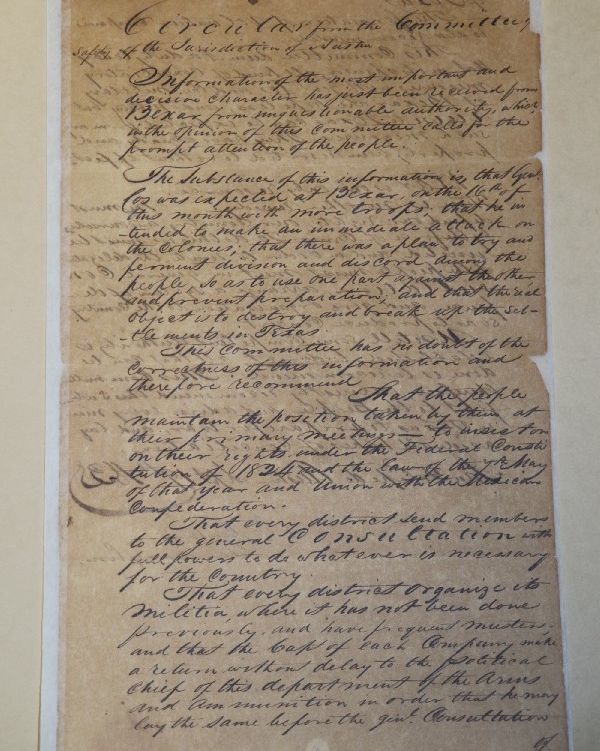 Circular from the Committee of
Safety of the Jurisdiction of Austin
Information of the most important and
decisive character has just been received from
Bexar, from unquestionable authority, which
in the opinion of this Committee calls for the
prompt attention of the people.
The Substance of this information is, that Genl
Cos was expected at Bexar, on the 16th of
this month with more troops; that he in-
tended to make an immediate attack on
the Colonies; that there was a plan to try and
ferment division and discord among the
people, so as to use one part against the other
and prevent preparation; and that the real
object is to destroy and break up the set-
-tlements in Texas
This Committee has no doubt of the
correctness of this information and
therefore recommend
That the people
maintain the position taken by them at
their primary meetings — to insist on
on their rights under the Federal Consti
tution of 1824 and the law of the 7th May
of that year and Union with the Mexican
Confederation.
That every district send members
to the general Consultation with
full powers to do what ever is necessary
for the Country
That every district organize its
militia, where it has not been done
previously, and have frequent musters
and that the Capt of each Company make
a return without delay to the political
chief of this department of the Arms
and ammunition in order that he may
lay the same before the genl. Consultation
of